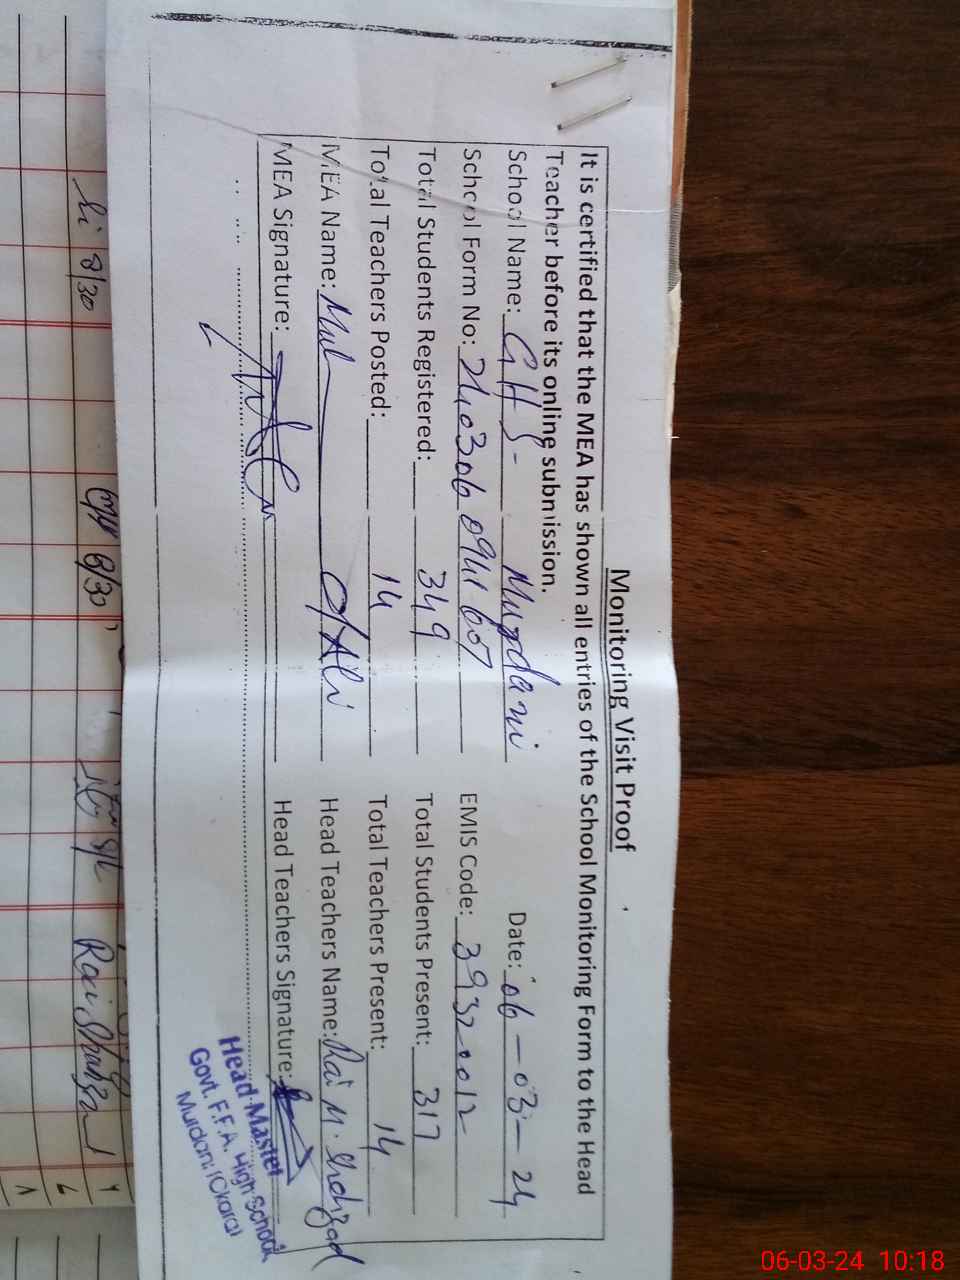 Monitoring Visit Proof
It is certified that the MEA has shown all entries of the School Monitoring Form to the Head
Teacher before its online submission.
School Name: GHS - Murdani Date: 06-03-24
School Form No: EMIS Code: 39320012
Total Students Registered: 349 Total Students Present: 317
Total Teachers Posted: 14 Total Teachers Present: 14
MEA Name: Muh Ali Head Teachers Name: Rai M. Shahzad
MEA Signature: Head Teachers Signature:
Head Master
Govt. F.F.A. High School
Murdani (Okara)
8/30
8/30
Rai Shahzad
06-03-24 10:18